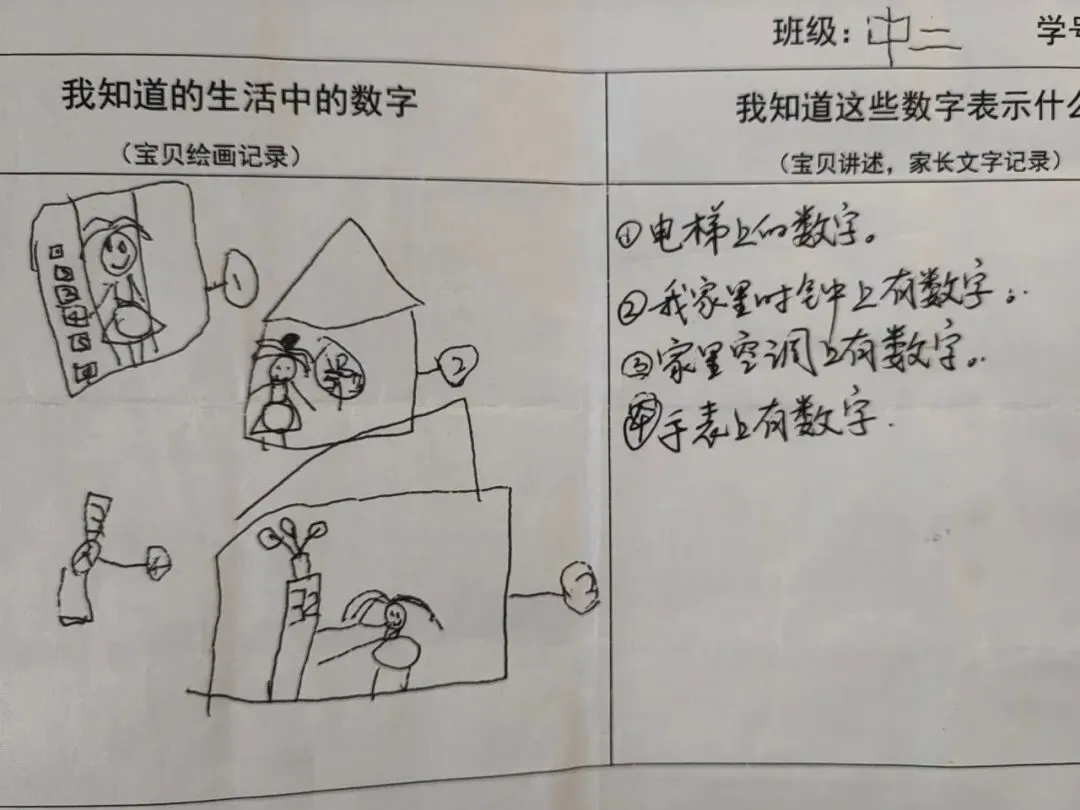 班级：中二 学号
我知道的生活中的数字
（宝贝绘画记录）
我知道这些数字表示什么
（宝贝讲述，家长文字记录）
①电梯上的数字。
②我家里时钟上有数字。
③家里空调上有数字。
④手表上有数字.
①
②
③
④
32